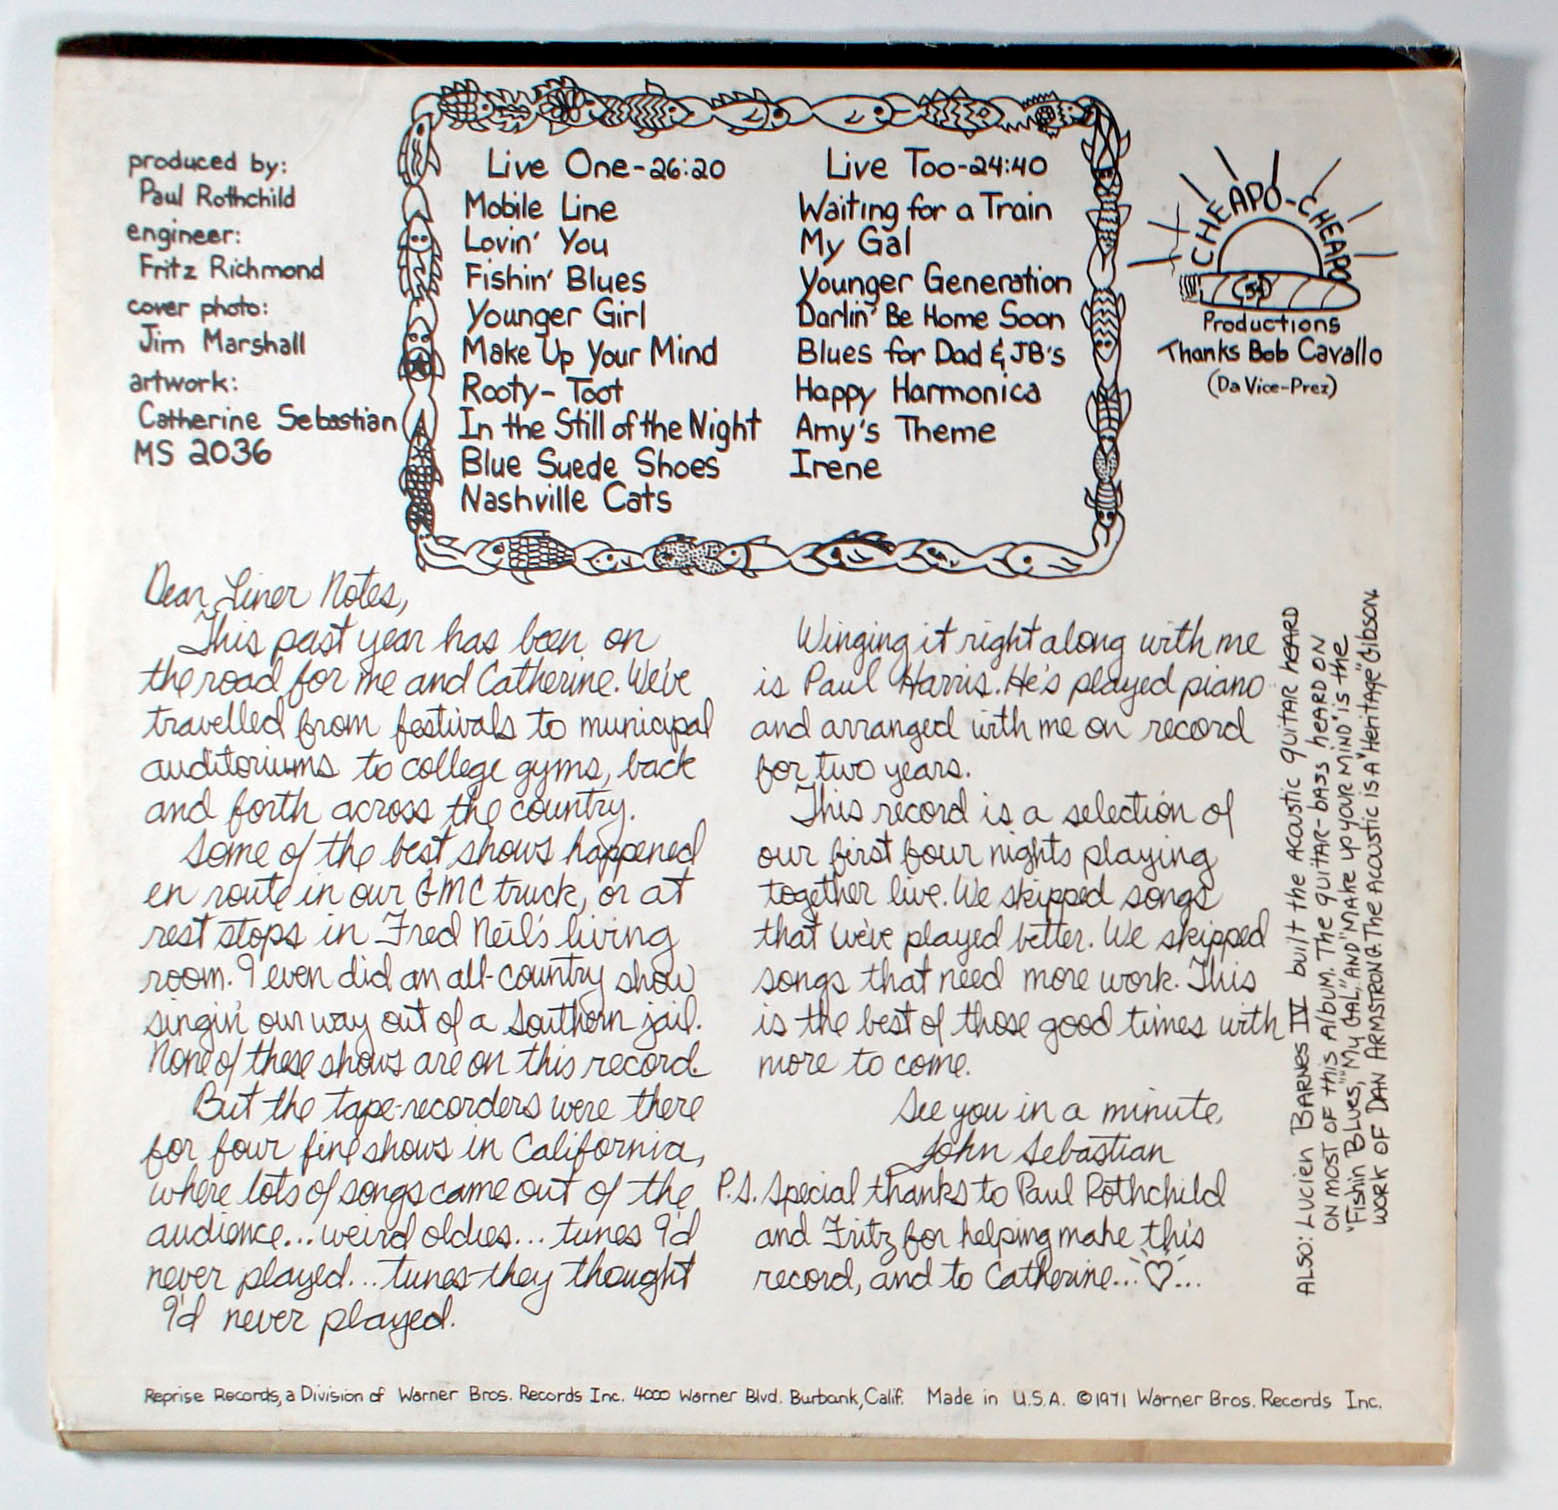 produced by:
Paul Rothchild
engineer:
Fritz Richmond
cover photo:
Jim Marshall
artwork:
Catherine Sebastian
MS 2036
Live One-26:20
Mobile Line
Lovin' You
Fishin' Blues
Younger Girl
Make Up Your Mind
Rooty-Toot
In the Still of the Night
Blue Suede Shoes
Nashville Cats
Live Too-24:40
Waiting for a Train
My Gal
Younger Generation
Darlin' Be Home Soon
Blues for Dad & JB's
Happy Harmonica
Amy's Theme
Irene
CHEAPO-CHEAPO
Productions
Thanks Bob Cavallo
(Da Vice-Prez)
Dear Liner Notes,
This past year has been on
the road for me and Catherine. We've
travelled from festivals to municipal
auditoriums to college gyms, back
and forth across the country.
Some of the best shows happened
en route in our GMC truck, or at
rest stops in Fred Neil's living
room. I even did an all-country show
singin' our way out of a Southern jail.
None of these shows are on this record.
But the tape-recorders were there
for four fine shows in California,
where lots of songs came out of the
audience... weird oldies... tunes I'd
never played... tunes they thought
I'd never played.
Winging it right along with me
is Paul Harris. He's played piano
and arranged with me on record
for two years.
This record is a selection of
our first four nights playing
together live. We skipped songs
that we've played better. We skipped
songs that need more work. This
is the best of those good times with
more to come.
See you in a minute,
John Sebastian
P.S. Special thanks to Paul Rothchild
and Fritz for helping make this
record, and to Catherine...♡...
ALSO: LUCIEN BARNES IV built the ACOUSTIC guitar heard
on most of this album. The guitar-bass heard on
"Fishin Blues," "My Gal," and "Make up your mind" is the
work of DAN ARMSTRONG. The ACOUSTIC is A "Heritage" Gibson.
Reprise Records, a Division of Warner Bros. Records Inc. 4000 Warner Blvd. Burbank, Calif. Made in U.S.A. ©1971 Warner Bros. Records Inc.